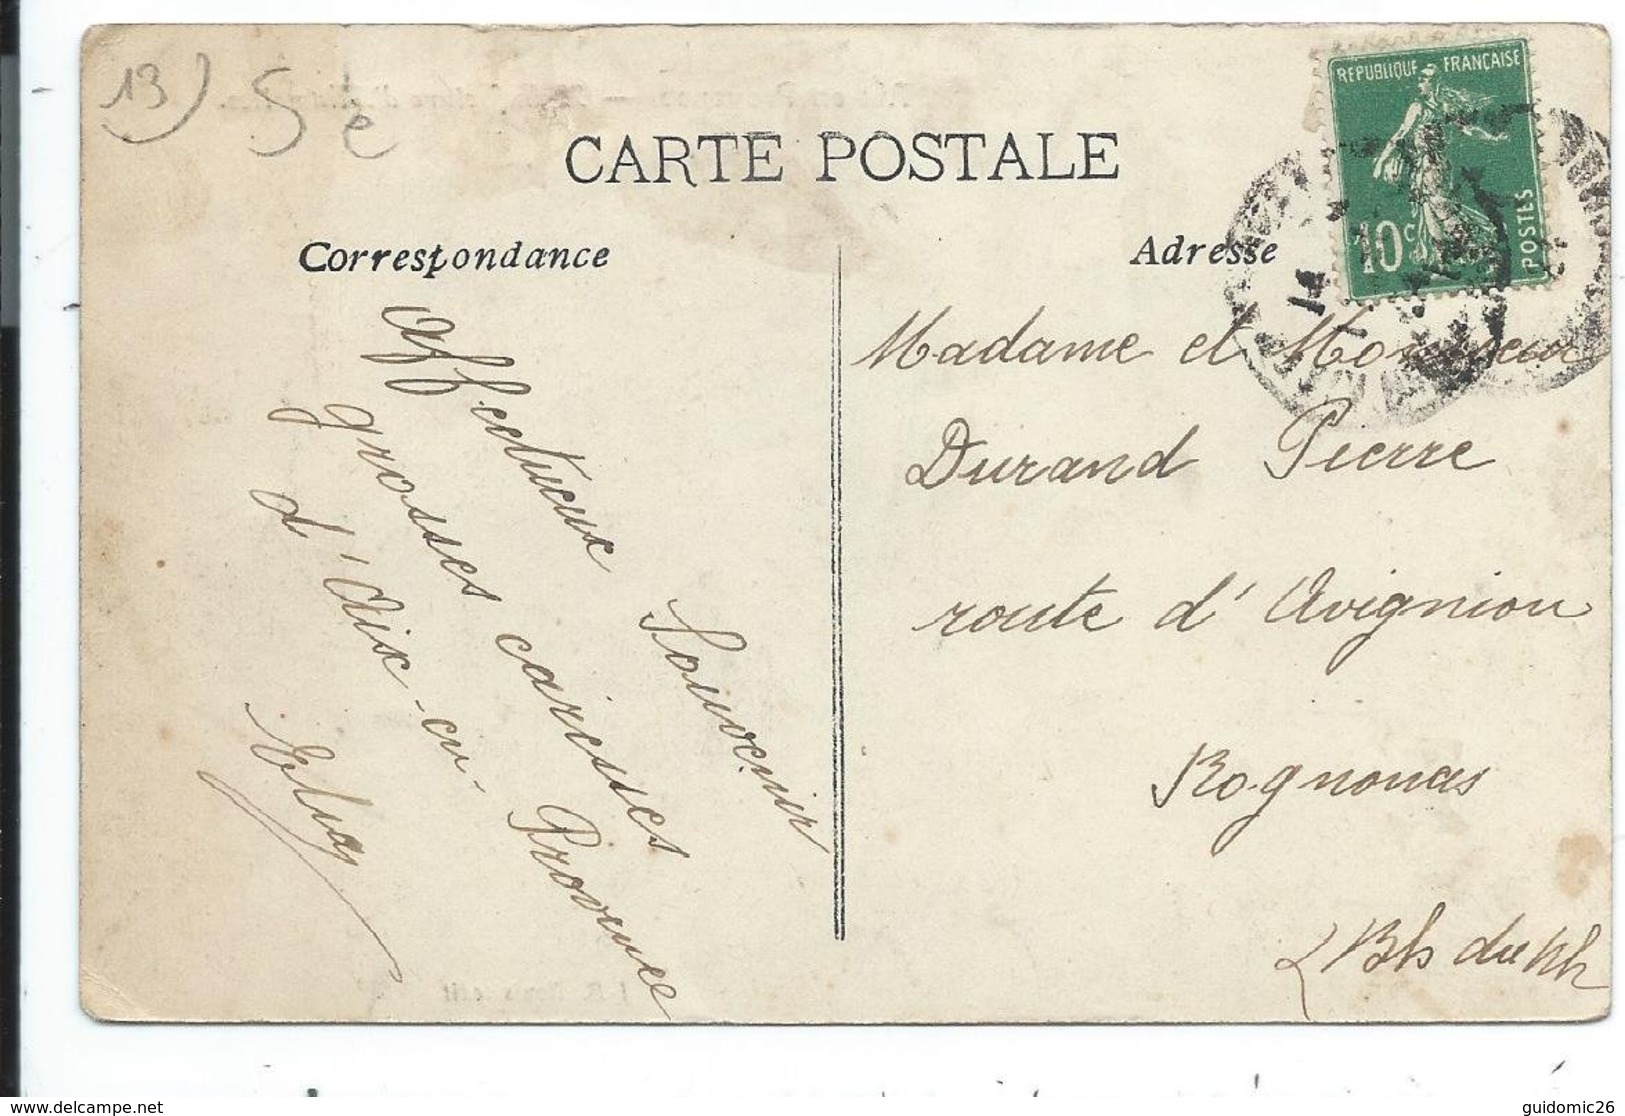 13)
CARTE POSTALE
REPUBLIQUE FRANÇAISE
10c
POSTES
Correspondance
Adresse
Affectueux Souvenir
grosses caresses
d'Aix-en-Provence
Madame et Monsieur
Durand Pierre
route d'Avignion
Rognonas
Bh du Rh
guidomic26